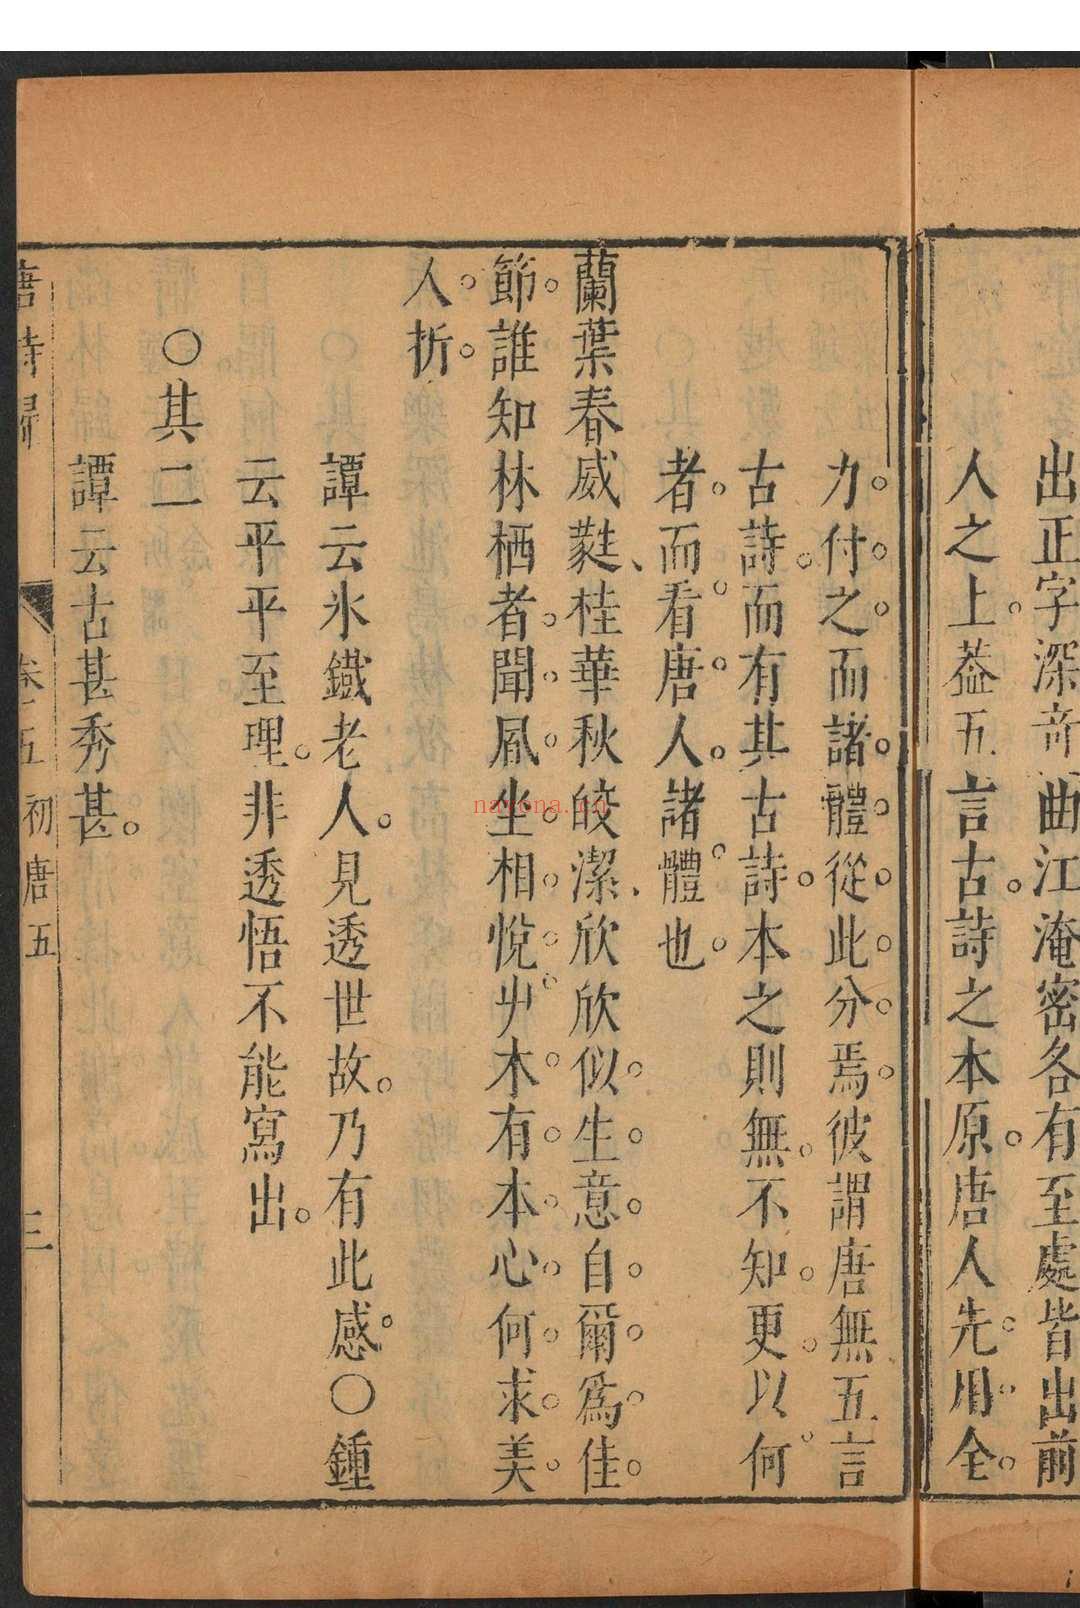 出正字深奇曲江淹密各有至處皆出前
人之上葢五言古詩之本原唐人先用全
力付之而諸體從此分焉彼謂唐無五言
古詩而有其古詩本之則無不知更以何
者而看唐人諸體也
蘭葉春葳蕤桂華秋皎潔欣欣似生意自爾爲佳
節誰知林栖者聞風坐相悅屮木有本心何求美
人折
譚云氷鐵老人見透世故乃有此感〇鍾
云平平至理非透悟不能寫出
〇其二
譚云古甚秀甚
唐詩歸 卷十五 初唐五 三
nayona.cn